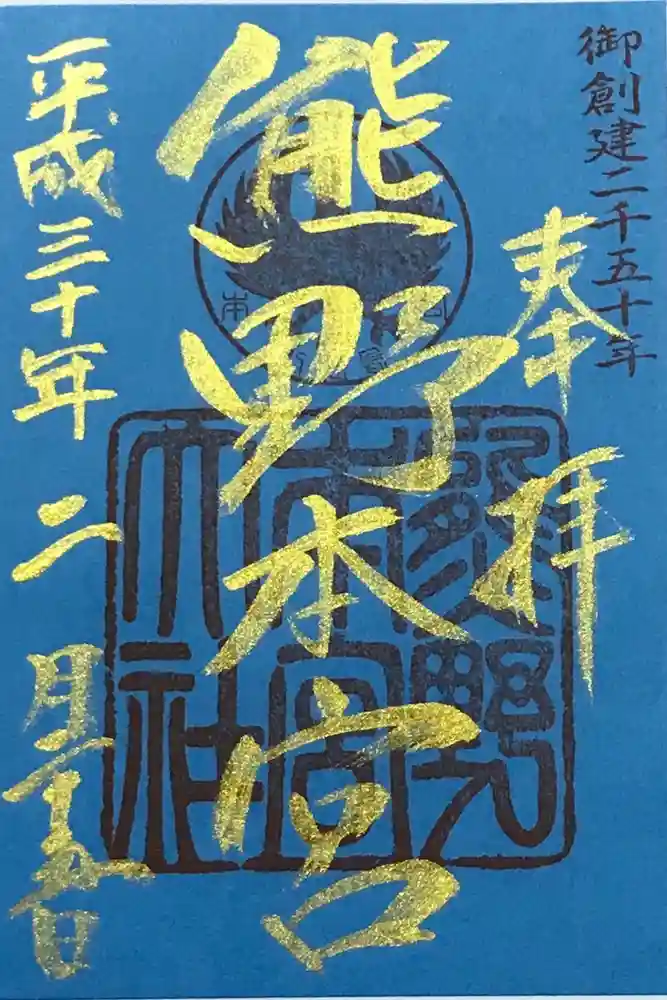 御創建二千五十年
奉拝
熊野本宮
熊野
本宮
大社
平成三十年二月二十日